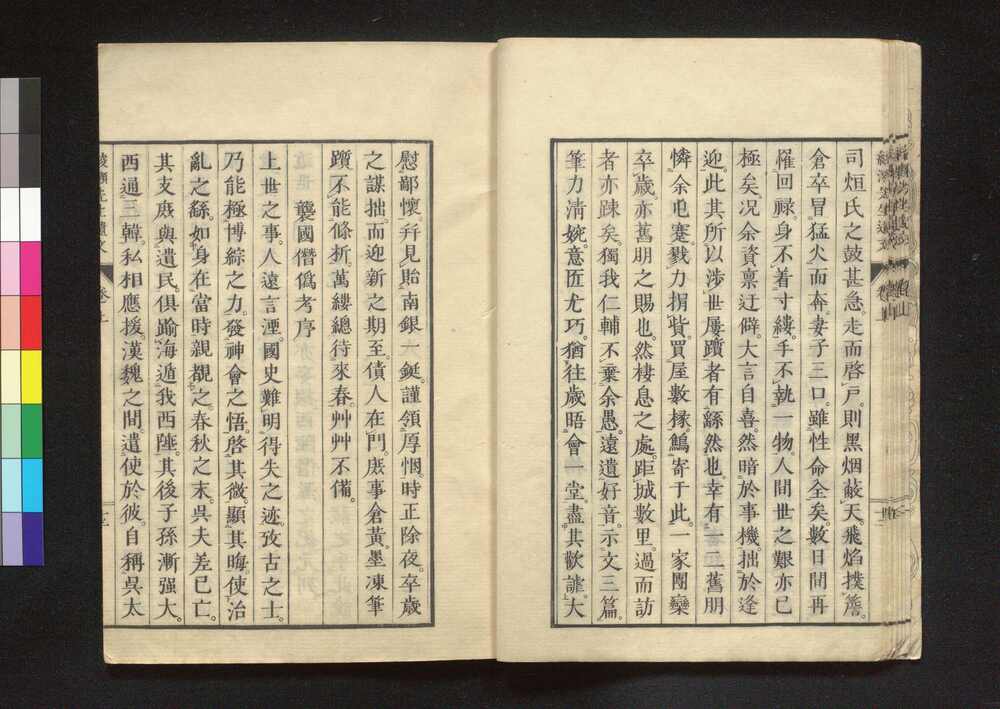 司烜氏之鼓甚急。走而啓戸則黑烟蔽天。飛焰撲簷。
倉卒冒猛火而奔。妻子三口。雖性命全矣。數日間再
罹回祿。身不着寸縷。手不執一物。人間世之艱亦已
極矣。况余資稟迂僻。大言自喜。然暗於事機。拙於逢
迎。此其所以涉世屢躓者有繇然也。幸有二舊朋
憐余屯蹇。戮力捐貲。買屋數椽。鷦寄于此。一家團欒
卒歲。亦舊朋之賜也。然棲息之處。距城數里。過而訪
者亦踈矣。獨我仁輔不棄余愚。遠遺好音。示文三篇。
筆力淸婉。意匠尤巧。猶往歲晤會一堂。盡其歡謔。大
慰鄙懷。幷見貽南銀一鋌。謹領厚悃。時正除夜。卒歲
之謀拙。而迎新之期至。債人在門。庶事倉黃。墨凍筆
躓不能條折。萬縷總待來春。艸艸不備。
襲國僭僞考序
上世之事。人遠言湮。國史難明得失之迹。攷古之士。
乃能極博綜之力。發神會之悟。啓其微。顯其晦。使治
亂之繇。如身在當時親覩之。春秋之末。吳夫差已亡。
其支庶與遺民。俱踰海遁我西陲。其後子孫漸强大。
西通三韓。私相應援。漢魏之間。遣使於彼。自稱吳太